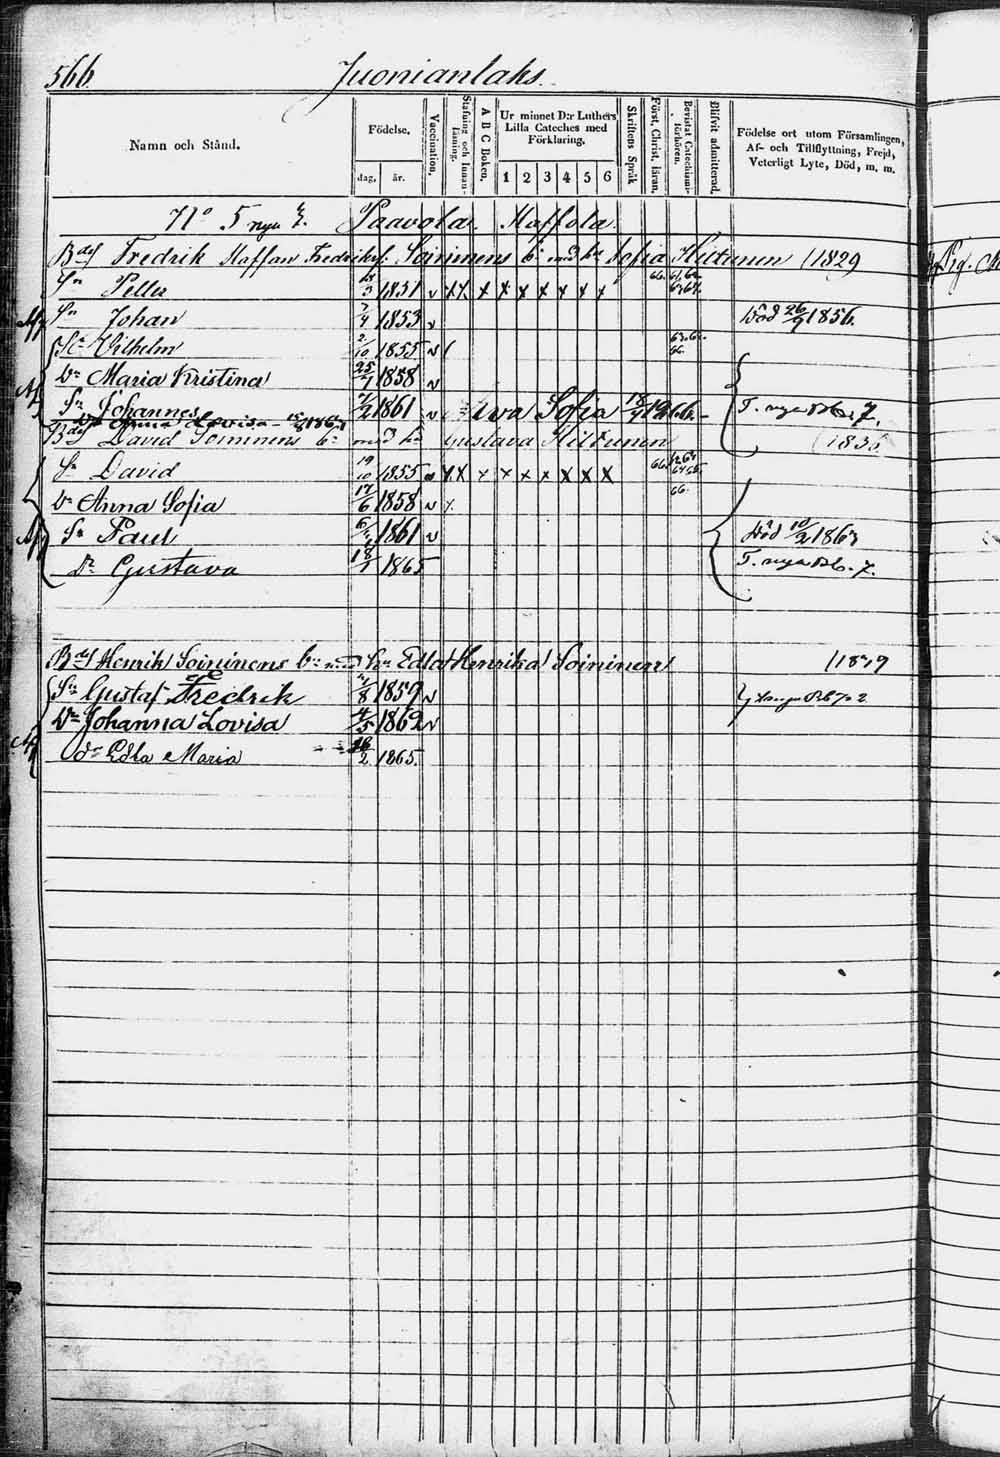 566. Juonianlaks.
Namn och Stånd.
Födelse.
dag. år.
Vaccination.
Stafning och Innanläsning.
A B C Boken.
Ur minnet D:r Luthers Lilla Cateches med Förklaring.
1 2 3 4 5 6
Skriftens Språk
Först. Christ. läran.
Bevistat Catechismiförhören.
Blifvit admitterad.
Födelse ort utom Församlingen, Af- och Tillflyttning, Frejd, Veterligt Lyte, Död, m. m.
No 5 nya Paavola. Maffola
Bdes Fredrik Staffan Fredriks: Soininens bn med hu Sofia Hiltunen (1829
Sn Petter 3 1851 v x x x x x x x x x 66.
Sn Johan 1853 v Död 26/9 1856.
Sn Vilhelm 2/10 1855 v
Dr Maria Kristina 25/7 1858 v
Sn Johannes 7/2 1861 v Eva Sofia 18/9 1866. T. nya Rb. 7.
Dr Anna Lovisa
Bdes David Soininens bn med hu Gustava Hiltunen (1836
Sn David 19/10 1855 x x x x x x x x x 66.
Dr Anna Sofia 17/6 1858 v x 66.
Sn Paul 1861 v Död 10/2 1863
Dr Gustava 18/1 1865 T. nya Rb. 7.
Bdes Henrik Soininens bn med hu Edla Henrika Soininen
Sn Gustaf Fredrik 1859 v
Dr Johanna Lovisa 4/5 1862 v
dr Edla Maria 2 1865.